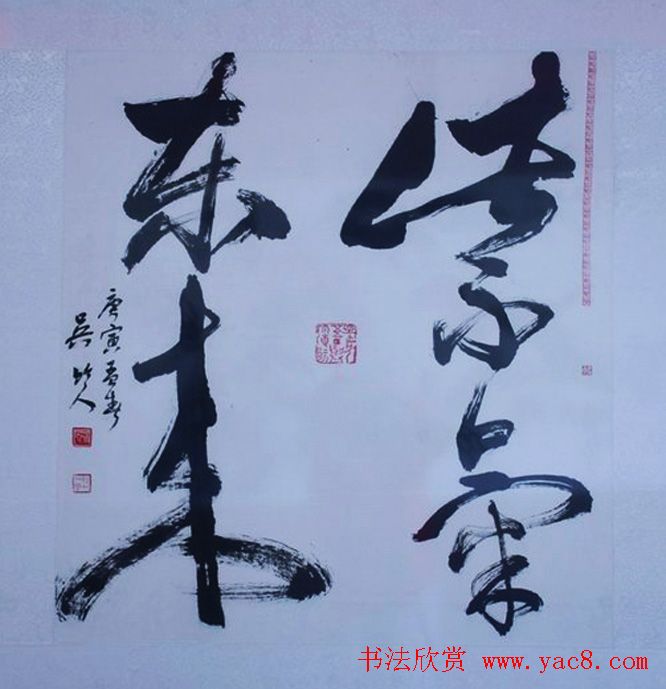 紫氣
东来
庚寅孟春
吴竹人
书法欣赏 www.yac8.com